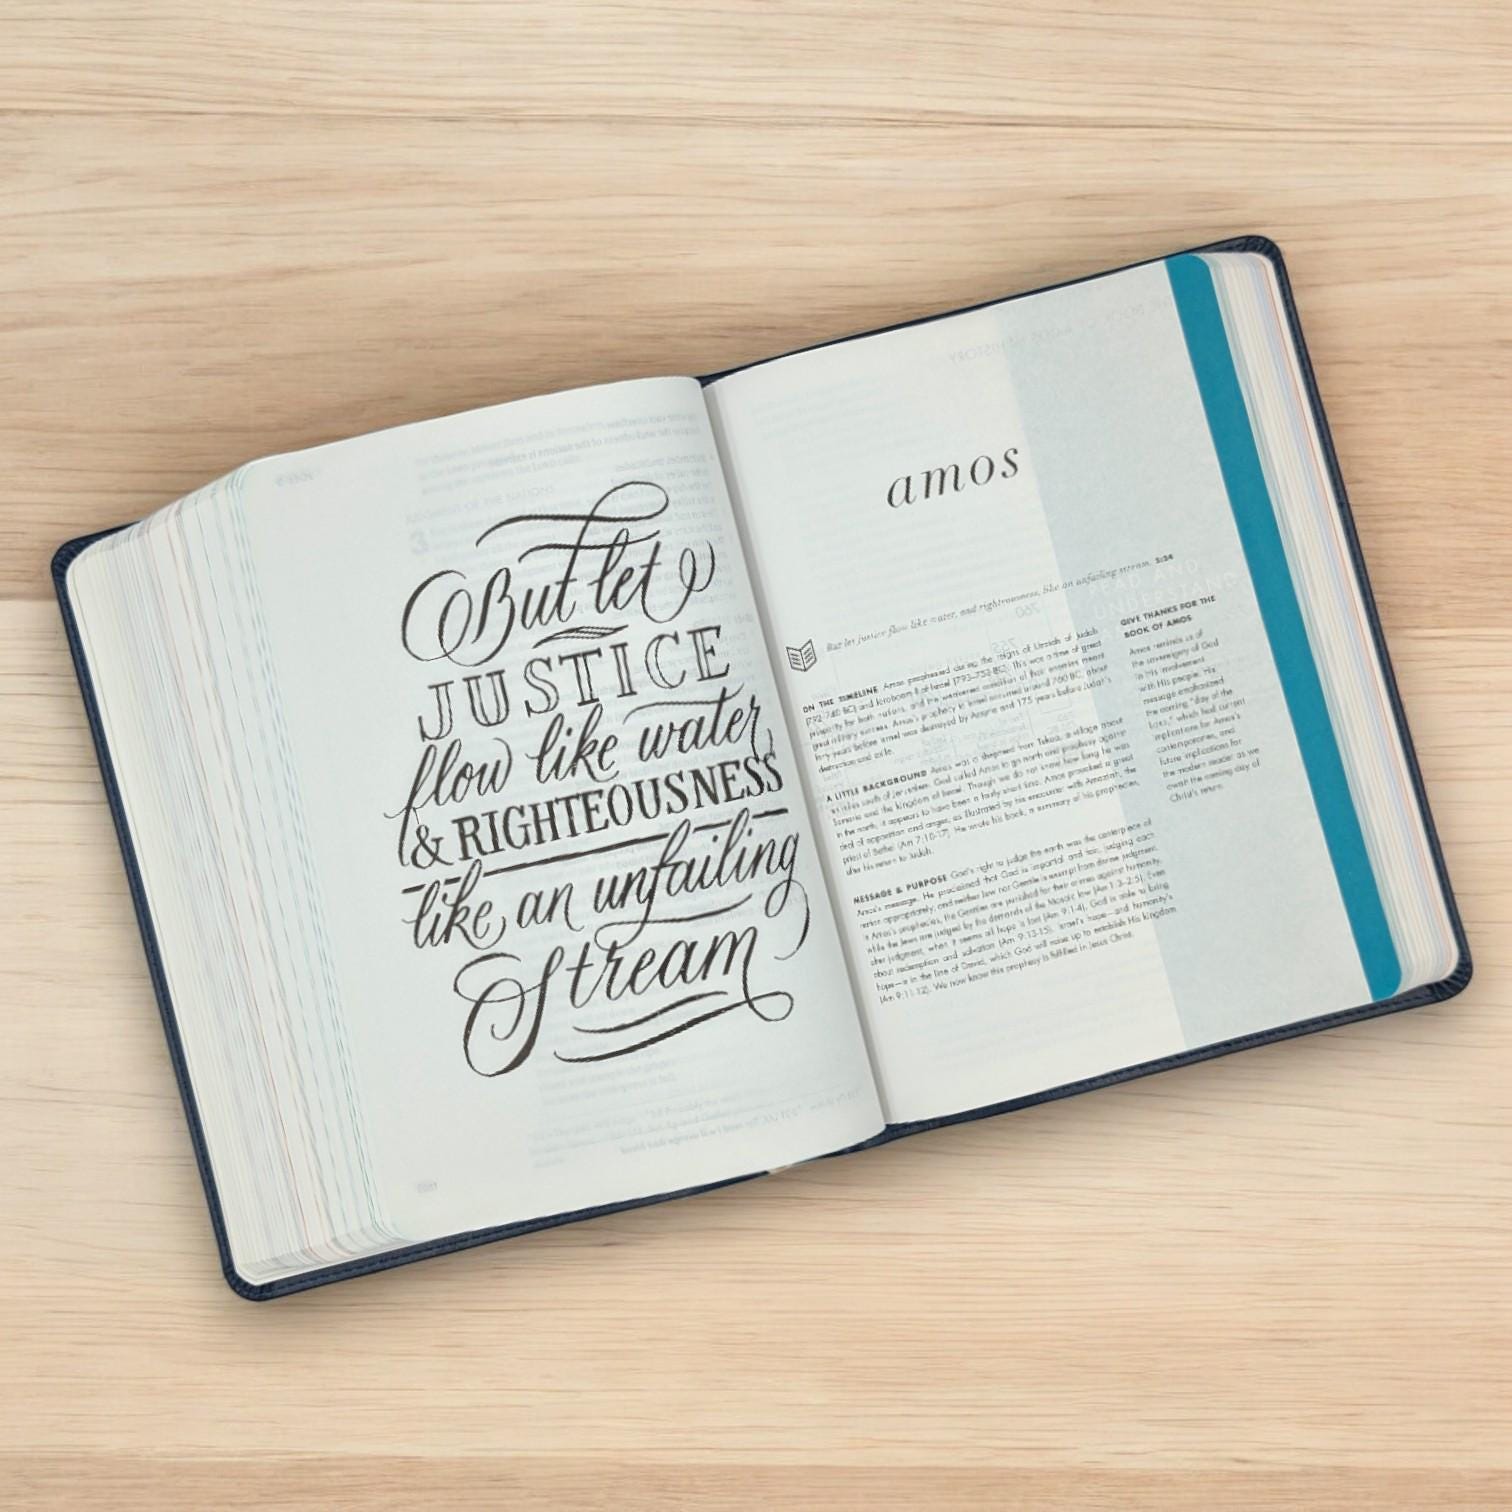 But let
JUSTICE
flow like water
& RIGHTEOUSNESS
like an unfailing
Stream
amos
But let justice flow like water, and righteousness, like an unfailing stream. 5:24
ON THE TIMELINE Amos prophesied during the reigns of Uzziah of Judah
(792–740 BC) and Jeroboam II of Israel (793–753 BC). This was a time of great
prosperity for both nations, and the weakened condition of their enemies meant
great military success. Amos's prophecy to Israel occurred around 760 BC, about
forty years before Israel was destroyed by Assyria and 175 years before Judah's
destruction and exile.
A LITTLE BACKGROUND Amos was a shepherd from Tekoa, a village about
miles south of Jerusalem. God called Amos to go north and prophesy against
Samaria and the kingdom of Israel. Though we do not know how long he was
in the north, it appears to have been a fairly short time. Amos provoked a great
deal of opposition and anger, as illustrated by his encounter with Amaziah, the
priest of Bethel (Am 7:10-17). He wrote his book, a summary of his prophecies,
after his return to Judah.
MESSAGE & PURPOSE God's right to judge the earth was the centerpiece of
Amos's message. He proclaimed that God is impartial and fair, judging each
nation appropriately, and neither Jew nor Gentile is exempt from divine judgment.
In Amos's prophecies, the Gentiles are punished for their crimes against humanity,
while the Jews are judged by the demands of the Mosaic law (Am 1:3–2:5). Even
after judgment, when it seems all hope is lost (Am 9:1-4), God is able to bring
about redemption and salvation (Am 9:13-15). Israel's hope—and humanity's
hope—is in the line of David, which God will raise up to establish His kingdom
(Am 9:11-12). We now know this prophecy is fulfilled in Jesus Christ.
GIVE THANKS FOR THE
BOOK OF AMOS
Amos reminds us of
the sovereignty of God
in his involvement
with His people. His
message emphasized
the coming "day of the
Lord," which had current
implications for Amos's
contemporaries, and
future implications for
the modern reader as we
await the coming day of
Christ's return.